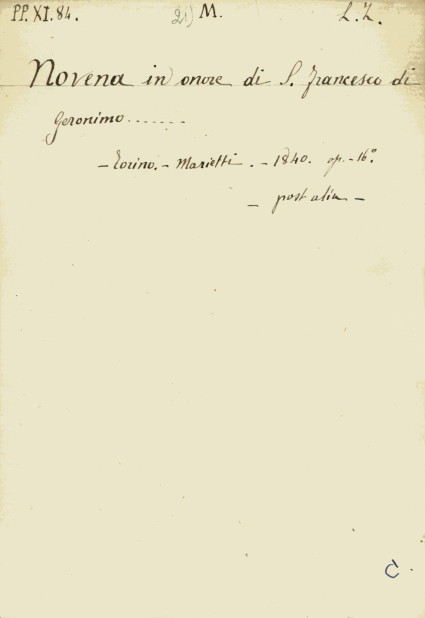 PP. XI. 84. 21) M. L. Z.
Novena in onore di S. Francesco di
Geronimo.......
– Torino. – Marietti. – 1840. op. – 16°.
– post alia –
C.